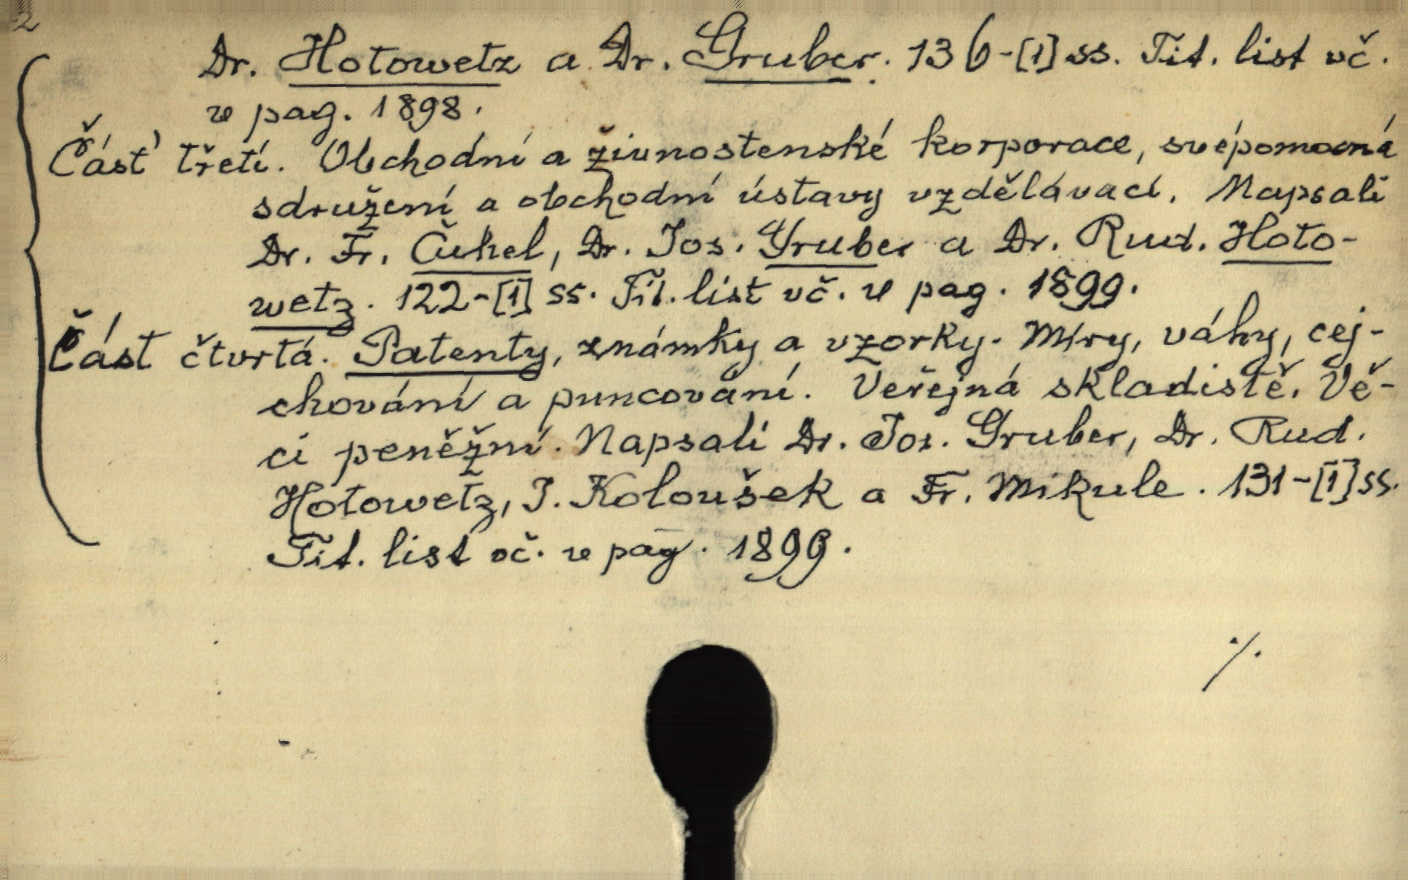 2
Dr. Hotowetz a Dr. Gruber. 136-[1] ss. Tit. list vč.
v pag. 1898.
Část třetí. Obchodní a živnostenské korporace, svépomocná
sdružení a obchodní ústavy vzdělávací. Napsali
Dr. Fr. Čuhel, Dr. Jos. Gruber a Dr. Rud. Hoto-
wetz. 122-[1] ss. Tit. list vč. v pag. 1899.
Část čtvrtá. Patenty, známky a vzorky. Míry, váhy, cej-
chování a puncování. Veřejná skladiště. Vě-
ci peněžní. Napsali Dr. Jos. Gruber, Dr. Rud.
Hotowetz, J. Koloušek a Fr. Mikule. 131-[1] ss.
Tit. list vč. v pag. 1899.
./.